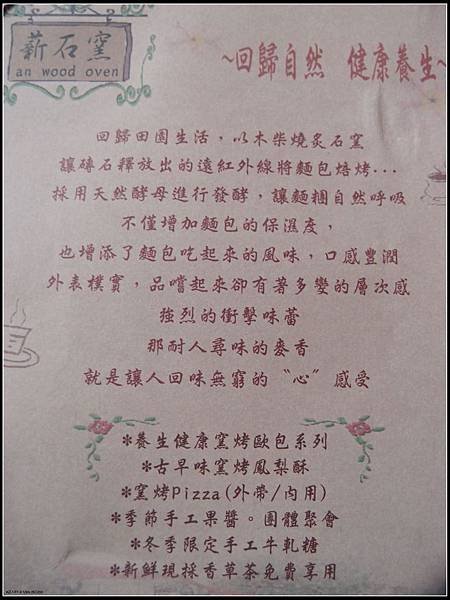 薪石窯
an wood oven
~回歸自然 健康養生~
回歸田園生活，以木柴燒炙石窯
讓磚石釋放出的遠紅外線將麵包焙烤...
採用天然酵母進行發酵，讓麵糰自然呼吸
不僅增加麵包的保濕度，
也增添了麵包吃起來的風味，口感豐潤
外表樸實，品嚐起來卻有著多變的層次感
強烈的衝擊味蕾
那耐人尋味的麥香
就是讓人回味無窮的〝心〞感受
*養生健康窯烤歐包系列
*古早味窯烤鳳梨酥
*窯烤Pizza(外帶/內用)
*季節手工果醬。團體聚會
*冬季限定手工牛軋糖
*新鮮現採香草茶免費享用